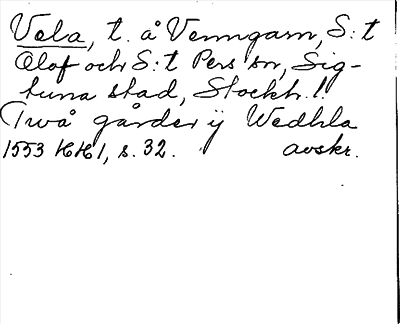 Vela, t. å Venngarn, S:t
Olof och S:t Pers sn, Sig-
tuna stad, Stockh. l.
Twå gårder ij Wedhla
1553 HH 1, s. 32. avskr.